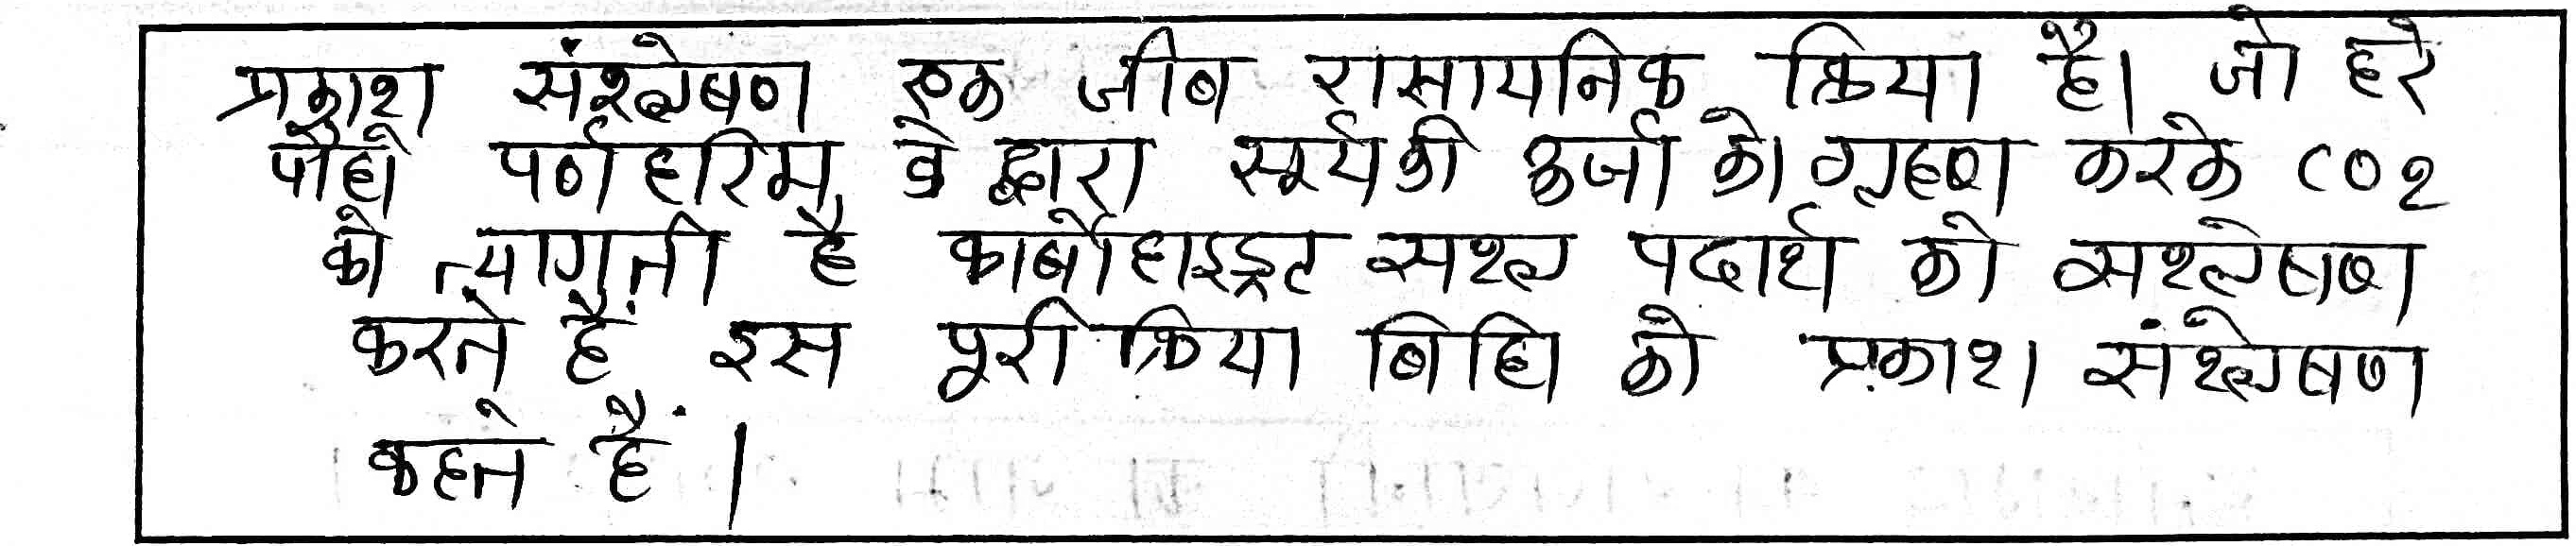 प्रकाश संश्लेषण एक जीब रासायनिक क्रिया है। जो हरे
पौधे पर्ण हरिम के द्वारा सूर्य की ऊर्जा को ग्रहण करके CO2
को त्यागती है कार्बोहाइड्रट सश्ल पदार्थ को सश्लेषण
करते हैं इस पूरी क्रिया बिधि को प्रकाश संश्लेषण
कहते हैं।